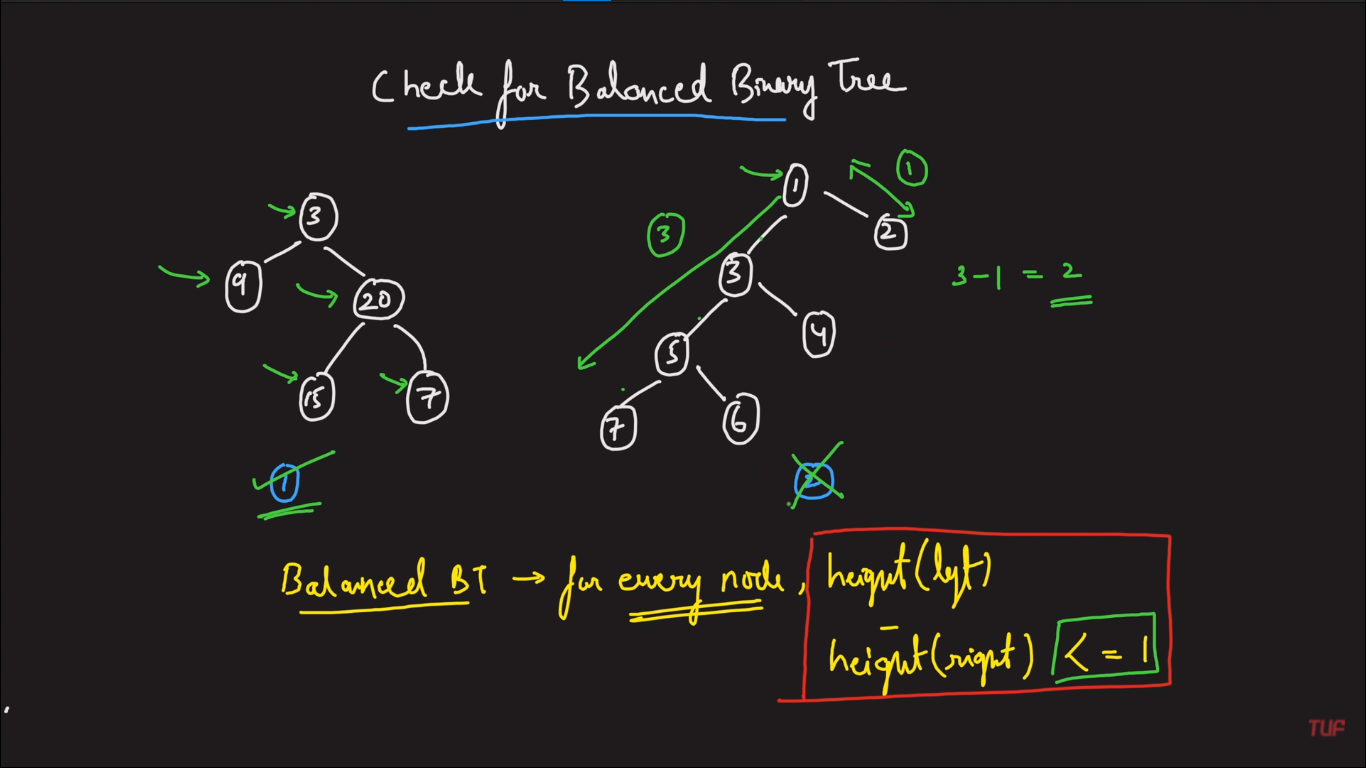 Check for Balanced Binary Tree
3
9
20
15
7
1
1
2
3
3
3-1 = 2
4
5
7
6
1
2
Balanced BT → for every node, height(left)
-
height(right) <= 1
TUF